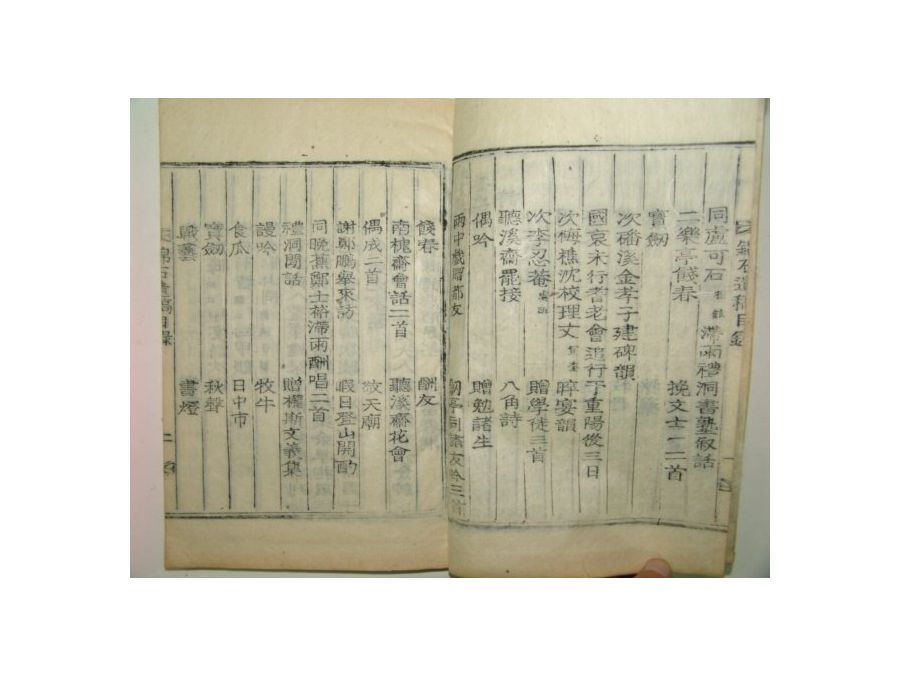 同盧可石滯雨禮洞書塾敘話
二樂亭餞春 挽文士一二首
寶劒
次磻溪金孝子建碑韻
國哀未行耆老會追行于重陽後三日
次梅樵沈校理丈 晬宴韻
次李忍菴 贈學徒三首
聽溪齋罷接 八角詩
偶吟 贈勉諸生
雨中戱贈都友 亭同諸友吟三首
餞春 酬友
南槐齋會話二首 聽溪齋花會
偶成二首 敬天廟
謝鄭鵬擧來訪 暇日登山開酌
同晩蕉鄭士裕滯雨酬唱二首
禮洞閒話 贈權斯文義集
謾吟 牧牛
食瓜 日中市
寶劒 秋聲
蠶 書燈
石遺稿目錄 二
石遺稿目錄 一